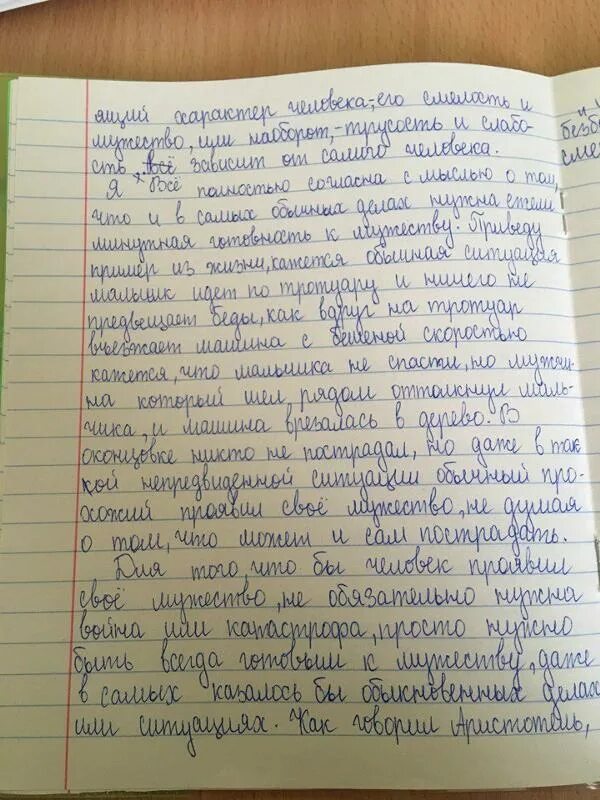 ящий характер человека, его смелость и
мужество, или наоборот, - трусость и слабо-
сть всё зависит от самого человека.
Я Всё полностью согласна с мыслью о том,
что и в самых обычных делах нужна ежеми
минутная готовность к мужеству. Приведу
пример из жизни, кажется обычная ситуация
мальчик идет по тротуару и ничего не
предвещает беды, как вдруг на тротуар
въезжает машина с бешеной скоростью
кажется, что мальчика не спасти, но мужчи-
на который шел рядом оттолкнул маль-
чика, и машина врезалась в дерево. В
оконцовке никто не пострадал, но даже в так
кой непредвиденной ситуации обычный про-
хожий проявил своё мужество, не думая
о том, что может и сам пострадать.
Для того, что бы человек проявил
своё мужество, не обязательно нужна
война или катастрофа, просто нужно
быть всегда готовым к мужеству, даже
в самых казалось бы обыкновенных делах
или ситуациях. Как говорил Аристотель,
и
безб
сме